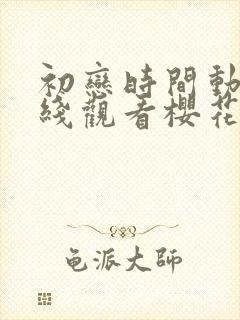 初戀時間動
綫觀看櫻花
龟派大师